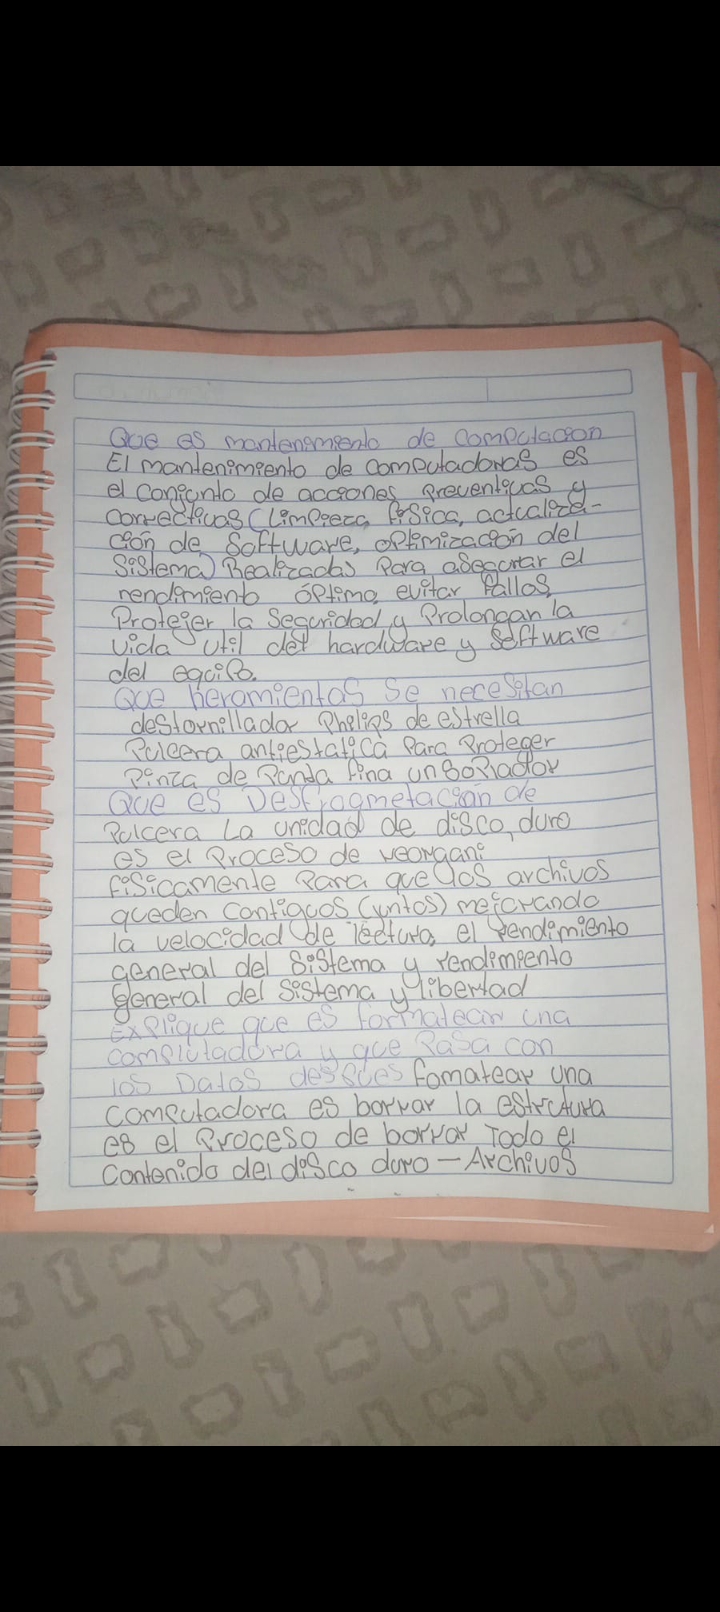 Que es mantenimiento de computacion
El mantenimiento de computadoras es
el conjunto de acciones preventivas y
correctivas (Limpieza, física, actualiza-
ción de Software, optimización del
Sistema) Realizadas Para asegurar el
rendimiento óptimo, evitar fallos,
Proteger la Seguridad y Prolongan la
vida util del hardware y Software
del equipo.
Que heramientas se necesitan
destornillador Philips de estrella
Pulcera antiestatica Para Proteger
Pinza de Punta fina un Soplador
Que es Desfragmetación de
Pulcera La unidad de disco, duro
es el Proceso de reorgani
fisicamente Para que los archivos
queden contiguos (juntos) mejorando
la velocidad de lectura, el rendimiento
general del Sistema y rendimiento
general del Sistema y libertad
Explique que es formatear una
computadora y que Pasa con
los Datos despues fomatear una
computadora es borrar la estructura
es el Proceso de borrar Todo el
Contenido del disco duro — Archivos